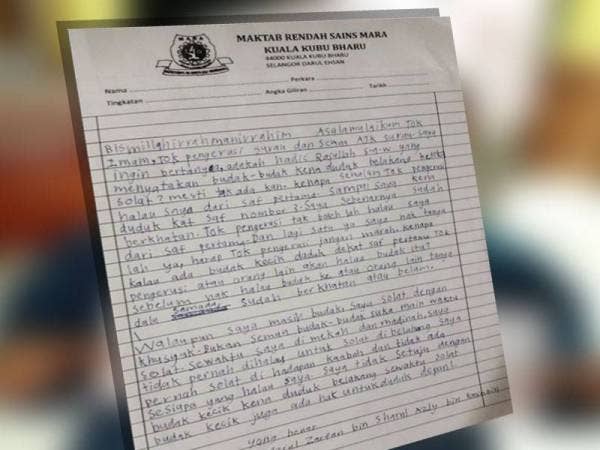 MARA
MAKTAB RENDAH SAINS MARA
KUALA KUBU BHARU
44000 KUALA KUBU BHARU
SELANGOR DARUL EHSAN
Nama Perkara
Tingkatan Angka Giliran Tarikh
Bismillahirrahmanirrahim Asalamulaikum Tok
Imam, Tok pengerusi surau dan semua AJK surau. Saya
ingin bertanya, adekah hadis Rasullah s.a.w yang
menyatakan budak-budak kena duduk belakang ketika
solat? mesti tak ada kan. kenapa Tok pengerusi
halau saya dari saf pertama. Sampai saya kena
duduk kat saf nombor 2? Saya sebenarnya sudah
berkhatan. Tok pengerusi tak boleh lah halau saya
dari saf pertama. Dan lagi satu ya saya nak tanya
lah ya, harap Tok pengerusi jangan marah. kenapa
kalau ada budak kecik duduk dekat saf pertama Tok
pengerusi atau orang lain akan halau budak itu?
sebelum nak halau budak ke atau orang lain tanya
dulu samada sudah berkhatan atau belum.
Walaupun saya masih budak, saya solat dengan
khusyuk. Bukan semua budak-budak suka main waktu
solat. sewaktu saya di mekah dan madinah, saya
tidak pernah dihalau untuk solat di belakang. saya
pernah solat di hadapan kaabah dan tidak ada
sesiapa yang halau saya. saya tidak setuju dengan
budak kecik kena duduk belakang sewaktu solat.
budak kecik juga ada hak untuk duduk depan!
yang benar
bin Sharul Azly bin